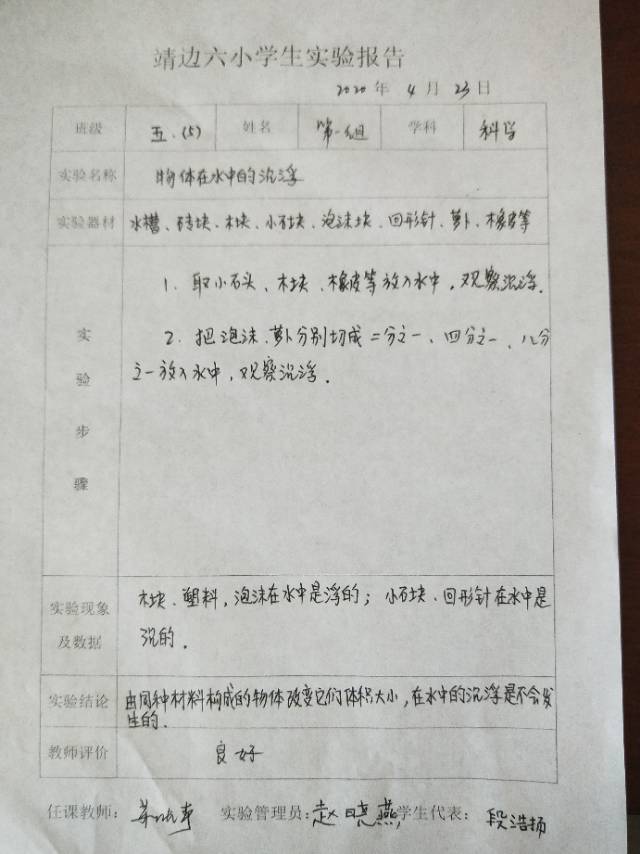 靖边六小学生实验报告
2020 年 4 月 23 日
班级 五.(5) 姓名 第一组 学科 科学
实验名称 物体在水中的沉浮
实验器材 水槽、砖块、木块、小石块、泡沫块、回形针、萝卜、橡皮等
实验步骤
1. 取小石头、木块、橡皮等放入水中,观察沉浮.
2. 把泡沫、萝卜分别切成二分之一、四分之一、八分
之一放入水中,观察沉浮.
实验现象
及数据
木块、塑料,泡沫在水中是浮的;小石块、回形针在水中是
沉的.
实验结论 由同种材料构成的物体改变它们体积大小,在水中的沉浮是不会发
生的.
教师评价 良好
任课教师: 实验管理员:赵晓燕 学生代表: 段浩扬